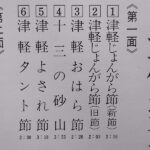 《第一面》
1 津軽じょんがら節(新節)
2 津軽じょんがら節(旧節)
3 津軽おはら節
4 十三の砂山
5 津軽よされ節
6 津軽タント節
《第二面》